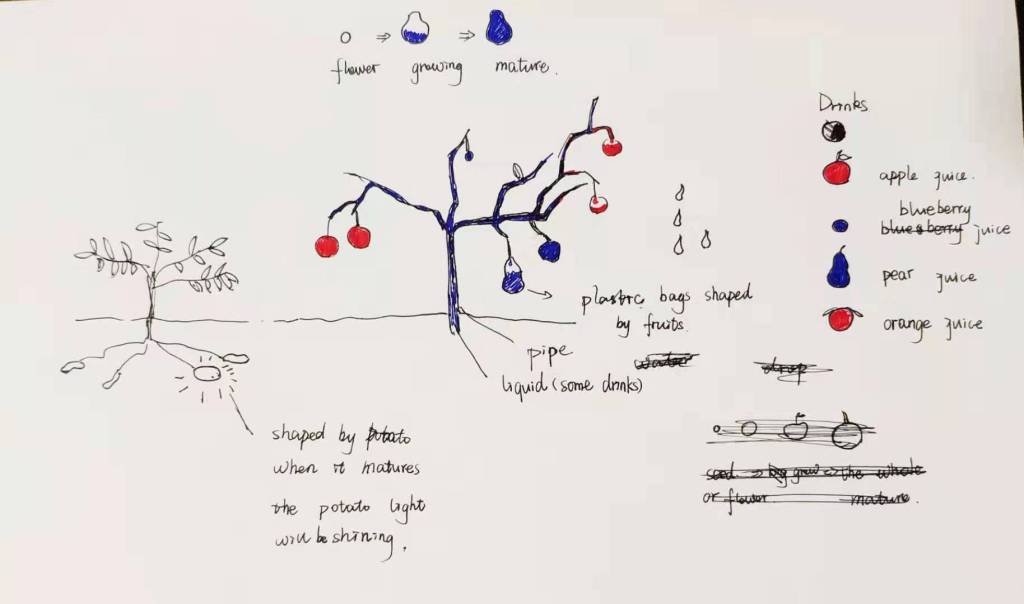 flower growing mature.
Drinks
apple juice.
blueberry
blue berry juice
pear juice
orange juice
plastic bags shaped
by fruits.
pipe
water
liquid (some drinks)
drop
shaped by potato
when it matures
the potato light
will be shining.
seed big grow the whole
or flower mature.